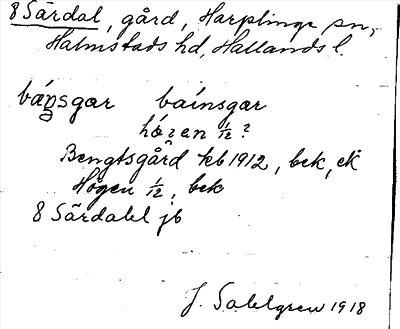 8 Särdal, gård, Harplinge sn,
Halmstads hd, Hallands l.
báṉsgar baínsgar
hó̂zen 1/2?
Bengtsgård kb 1912, bek, ek
Högen 1/2, bek
8 Särdal jb
J. Sahlgren 1918